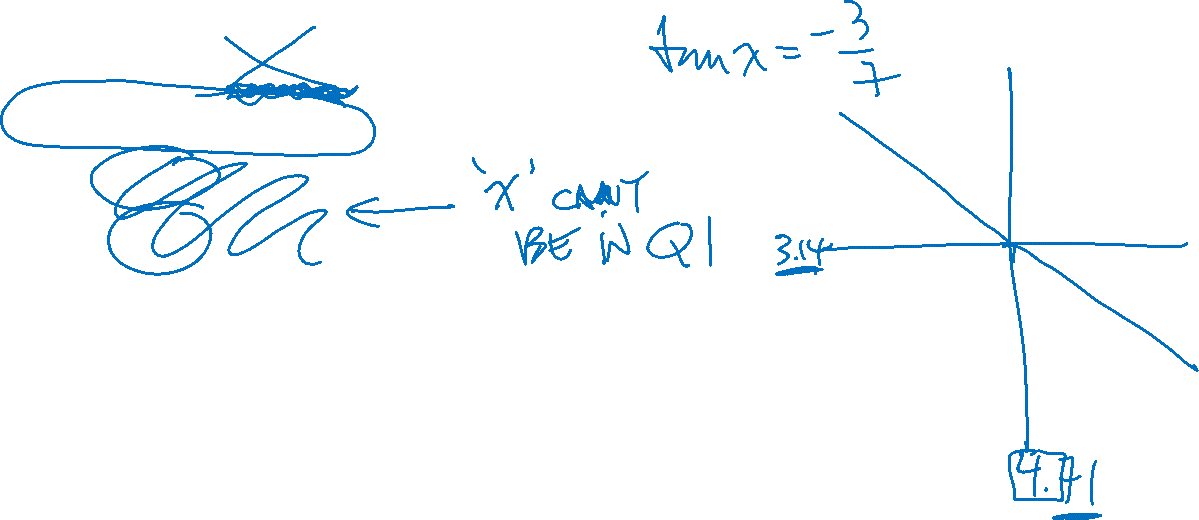 tan x = -3/7
'x' CAN'T
BE IN Q1
3.14
4.71